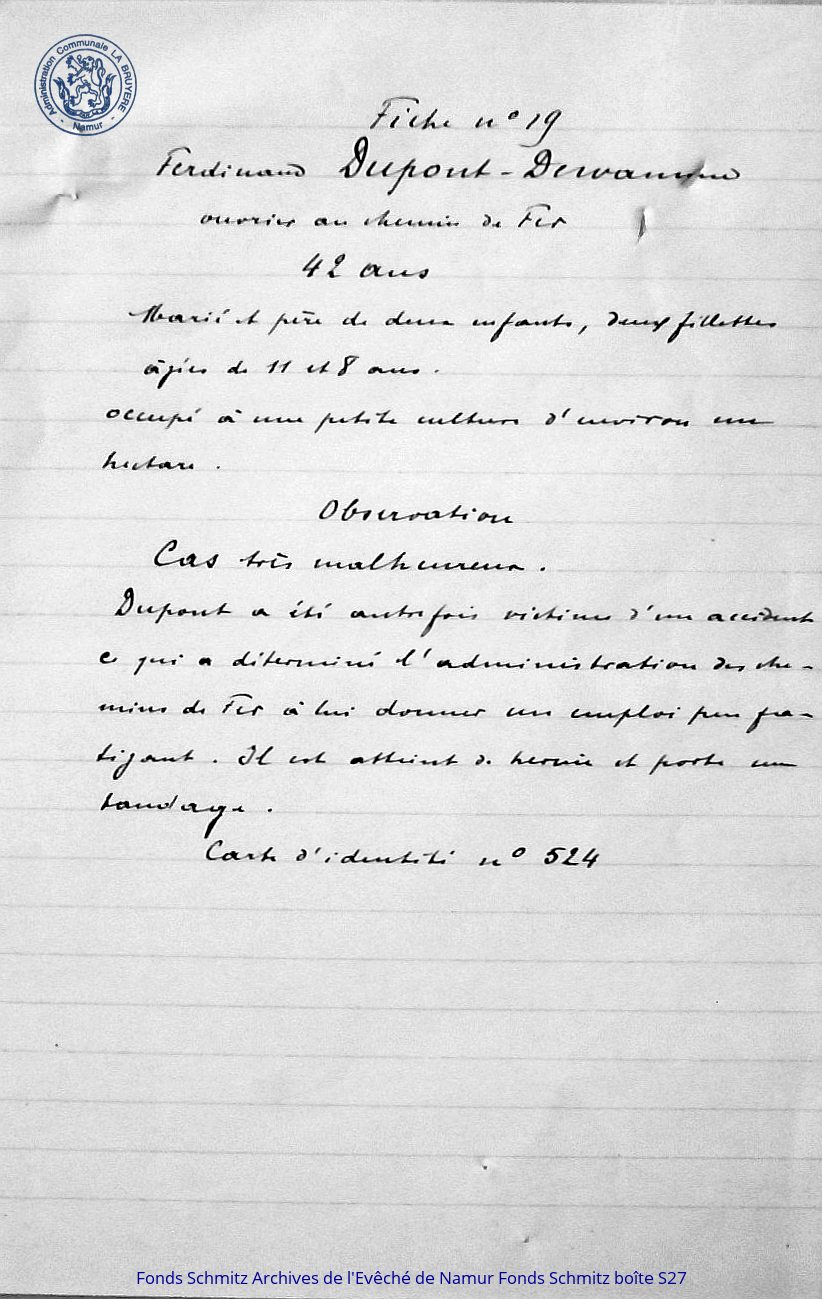 Administration Communale LA BRUYERE
- Namur -
Fiche n° 19
Ferdinand Dupont-
ouvrier au chemin de Fer
42 ans
Marié et père de deux enfants, deux fillettes
âgées de 11 et 8 ans.
occupé à une petite culture d'environ un
hectare.
Observation
Cas très malheureux.
Dupont a été autrefois victime d'un accident
ce qui a déterminé l'administration des che-
mins de Fer à lui donner un emploi peu fa-
tigant. Il est atteint de hernie et porte un
bandage.
Carte d'identité n° 524
Fonds Schmitz Archives de l'Evêché de Namur Fonds Schmitz boîte S27